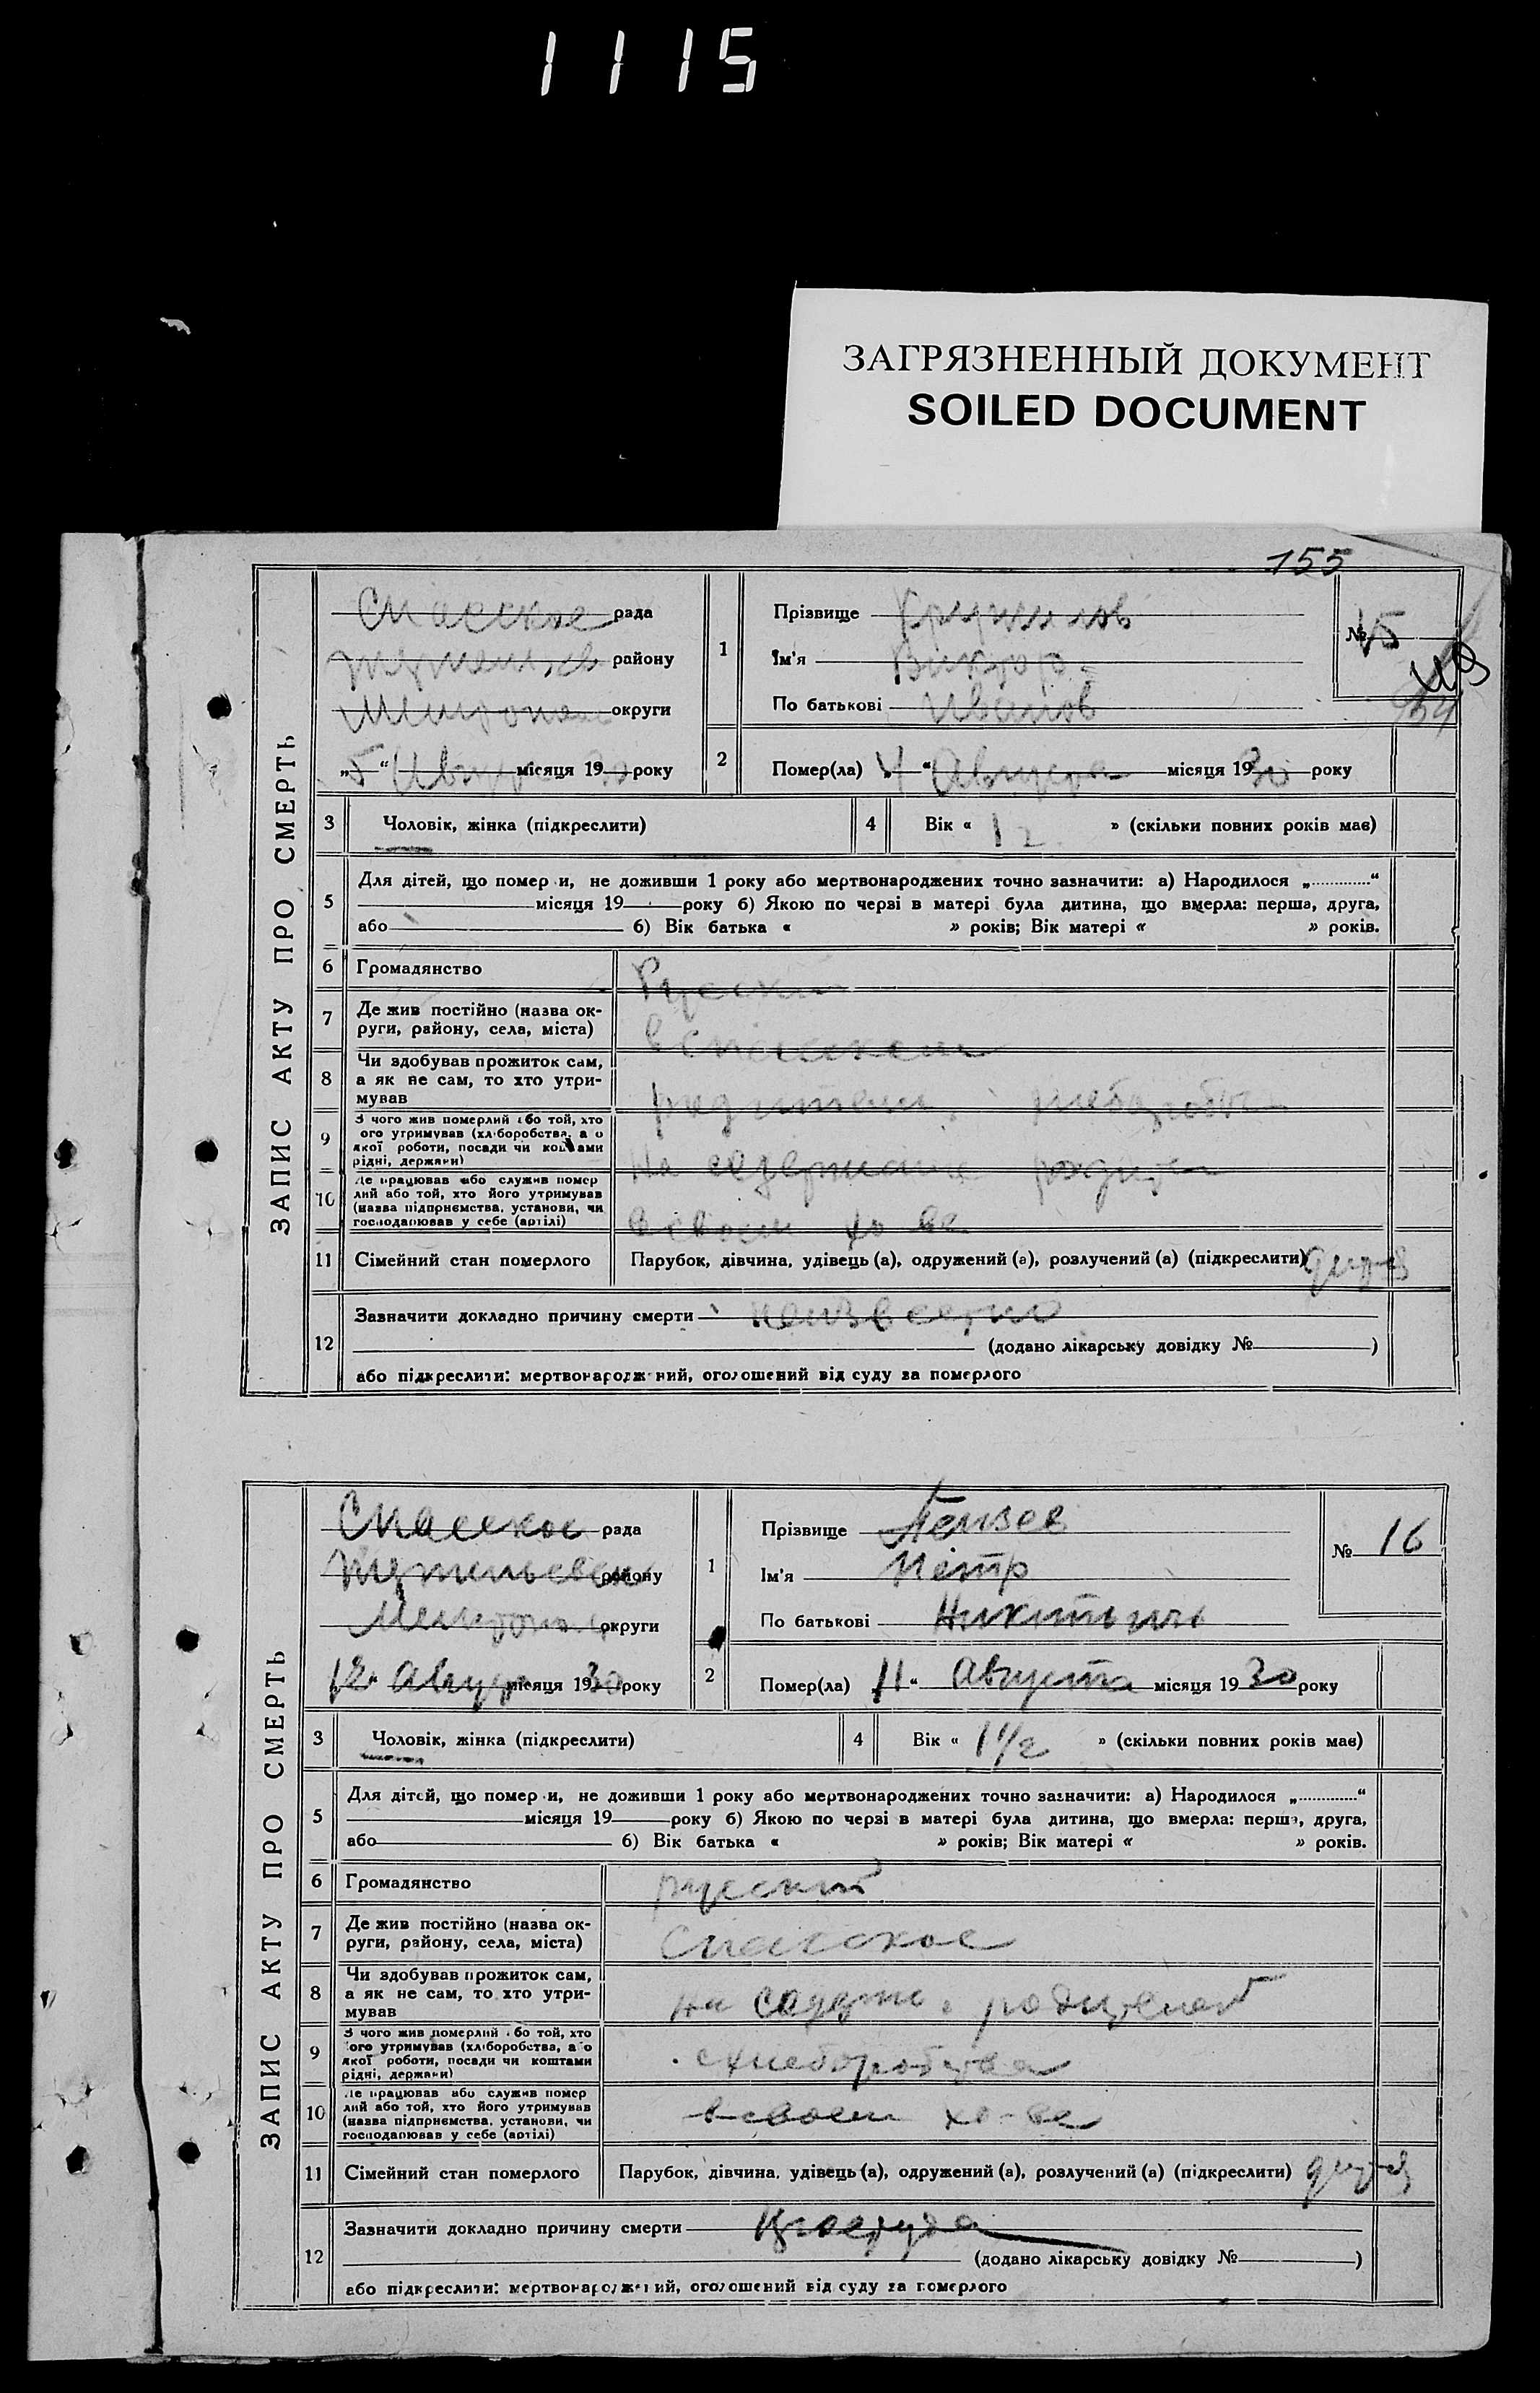 1115
ЗАГРЯЗНЕННЫЙ ДОКУМЕНТ
SOILED DOCUMENT
155
ЗАПИС АКТУ ПРО СМЕРТЬ
Спасское рада
району
округи
„5“ Авгус місяця 1930 року
1
Прізвище
Ім'я Виктор
По батькові Иванов
№ 15
2
Помер(ла) „4“ Августа місяця 1930 року
3
Чоловік, жінка (підкреслити)
4
Вік « 1 » (скільки повних років має)
5
Для дітей, що помер и, не доживши 1 року або мертвонароджених точно зазначити: а) Народилося „............“
місяця 19 року б) Якою по черзі в матері була дитина, що вмерла: перша, друга,
або б) Вік батька « » років; Вік матері « » років.
6
Громадянство
Русский
7
Де жив постійно (назва ок-
руги, району, села, міста)
в Спасском
8
Чи здобував прожиток сам,
а як не сам, то хто утри-
мував
родители
9
З чого жив померлий або той, хто
ого утримував (хліборобства, а о
якої роботи, посади чи коштами
рідні, держави)
На содержание
10
Де працював або служив помер
лий або той, хто його утримував
(назва підприємства, установи, чи
господарював у себе (артілі)
в своем хо-ве
11
Сімейний стан померлого
Парубок, дівчина, удівець (а), одружений (а), розлучений (а) (підкреслити) дитя
12
Зазначити докладно причину смерти неизвестно
(додано лікарську довідку № )
або підкреслити: мертвонароджений, оголошений від суду за померлого
ЗАПИС АКТУ ПРО СМЕРТЬ
Спасское рада
району
округи
12“ Август місяця 1930 року
1
Прізвище
Ім'я Петр
По батькові Никитичъ
№ 16
2
Помер(ла) 11“ Августа місяця 1930 року
3
Чоловік, жінка (підкреслити)
4
Вік « 1 1/2 » (скільки повних років має)
5
Для дітей, що помер и, не доживши 1 року або мертвонароджених точно зазначити: а) Народилося „............“
місяця 19 року б) Якою по черзі в матері була дитина, що вмерла: перша, друга,
або б) Вік батька « » років; Вік матері « » років.
6
Громадянство
русский
7
Де жив постійно (назва ок-
руги, району, села, міста)
Спасское
8
Чи здобував прожиток сам,
а як не сам, то хто утри-
мував
на содерж. родителей
9
З чого жив померлий або той, хто
ого утримував (хліборобства, а о
якої роботи, посади чи коштами
рідні, держави)
10
Де працював або служив помер
лий або той, хто його утримував
(назва підприємства, установи, чи
господарював у себе (артілі)
в своем хо-ве
11
Сімейний стан померлого
Парубок, дівчина, удівець (а), одружений (а), розлучений (а) (підкреслити) дитя
12
Зазначити докладно причину смерти
(додано лікарську довідку № )
або підкреслити: мертвонароджений, оголошений від суду за померлого